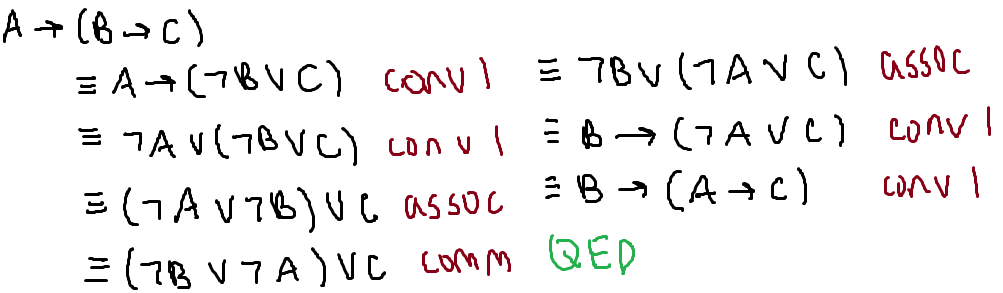 A → (B → C)
≡ A → (¬B ∨ C) conv 1
≡ ¬A ∨ (¬B ∨ C) conv 1
≡ (¬A ∨ ¬B) ∨ C assoc
≡ (¬B ∨ ¬A) ∨ C comm
≡ ¬B ∨ (¬A ∨ C) assoc
≡ B → (¬A ∨ C) conv 1
≡ B → (A → C) conv 1
QED